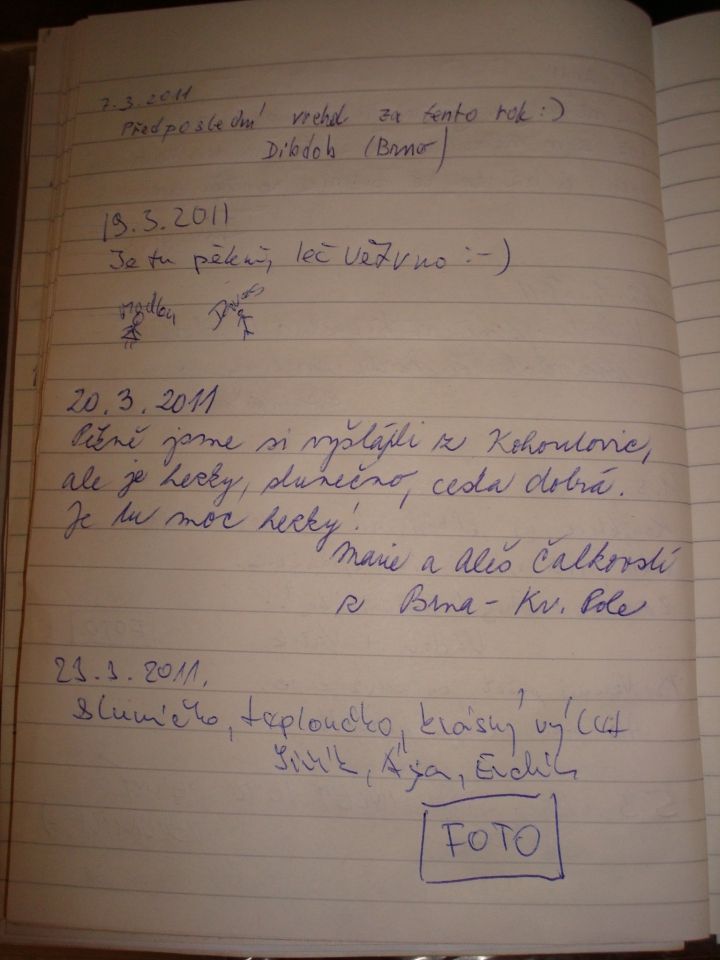 7.3.2011
Předposlední vrchol za tento rok :)
Dibdob (Brno)
19.3.2011
Je tu pěkně, leč větrno :-)
20.3.2011
Pěšně jsme si vyšlápli z Kohoutovic,
ale je hezky, slunečno, cesta dobrá.
Je tu moc hezky!
Marie a Aleš Čalkovští
z Brna - Kr. Pole
23.3.2011.
Sluníčko, teploučko, krásný výlet
Jiřík, Ája,
FOTO